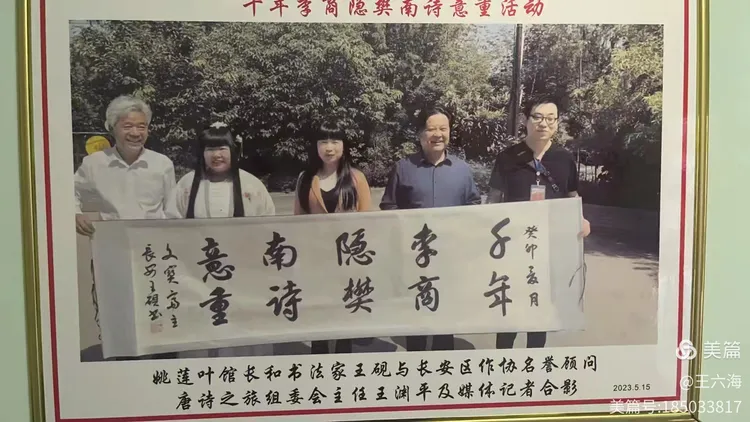 千年李商隐樊南诗意重活动
癸卯夏月
千年
李商
隐樊
南诗
意重
长安王砚书
姚莲叶馆长和书法家王砚与长安区作协名誉顾问
唐诗之旅组委会主任王渊平及媒体记者合影
2023.5.15
美篇
@王六海
美篇号:185033817